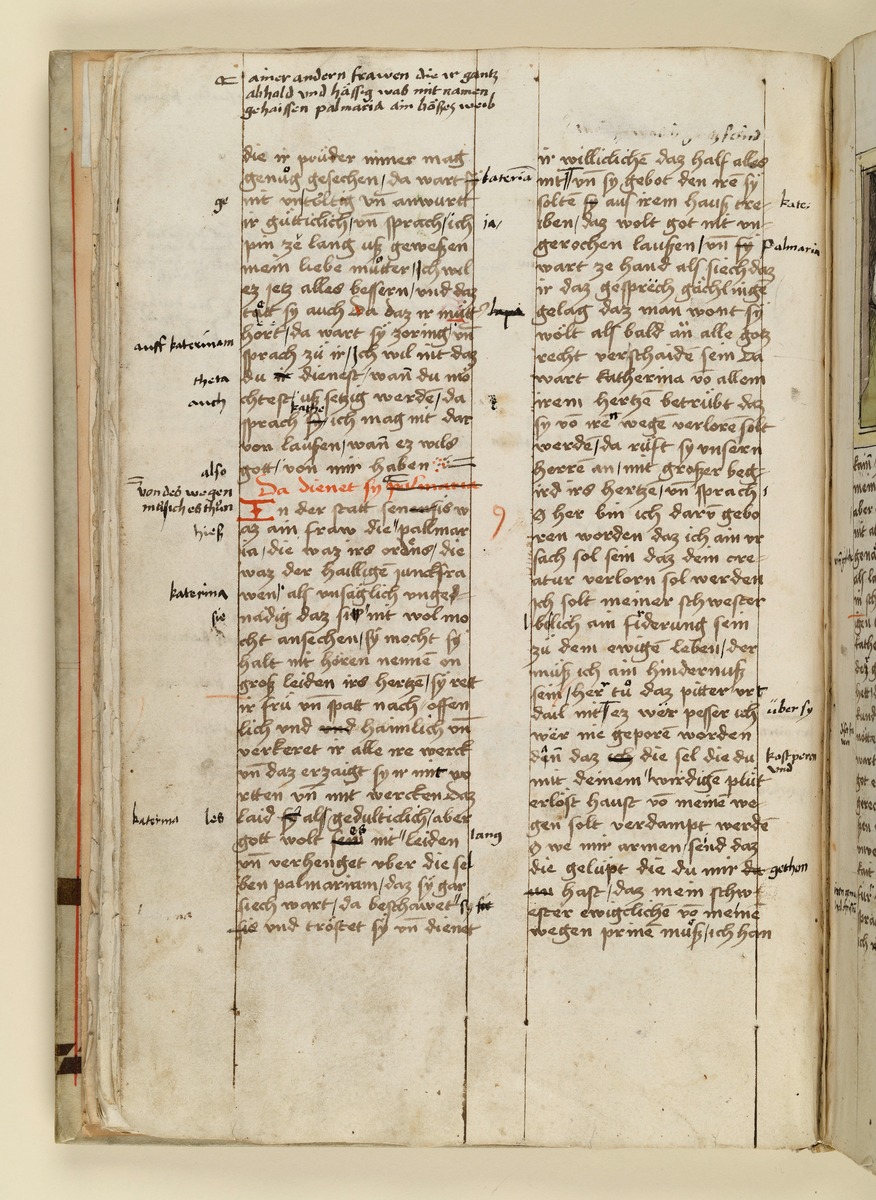 ainer andern frawen die ir gantz
abhold vnd hässig was mit namen
gehaissen palmaria ain bösses weib
die ir prüder nimer mag
genůg gesechen / da wart
nit vngedultig vn̄ anwurtt
ir gütticlich / vn̄ sprach / ich
pin ze lang uß geweßen
mein liebe můtter / Ich wil
ez jetz alles bessern / vnd daz
tätt sy auch da daz ir mütt
hört / da wart sy zornig / vn̄
sprach zů ir / Ich wil nit daz
du dienest / wan̄ du mö
chtest / uß setzig werde / da
sprach ich mag nit dar
von laußen / wan̄ ez wils
gott / von mir haben
Da dienet sy palmaria
In der statt senensis w
az ain fraw die pallmar
ia / die waz irs ordēns / die
waz der hailligē junckfra
wen / als vnsäglich vnged
nädig daz si nit wol mo
cht ansechen / sy mocht sy
halt nit hören nennē on
groß leiden irs hertzē / sy rett
ir frü vn̄ spatt nach / offen
lich vnd vnd haimlich vn̄
verkeret ir alle ire werck
vn̄ daz erzaigt sy ir mit wo
rtten vn̄ mit wercken daz
laid als gedulticlich / aber
gott wolt es nit leiden
vn̄ verhenget vber die sel
ben palmariam / daz sy gar
siech wart / da beschawet sy
sis vnd tröstet sy vn̄ dienet
auff katerinam
auch
also
von des wegen
hieß
katerina
sie
katerina
les
lang
katerīa
ia /
ir williclichē daz half alles
nit vn̄ sy gebot den irē sy
solten sy auß irem hauß tre
iben / daz wolt got nit vn
gerochen laußen / vn̄ sy
wart ze hand als siech daz
ir daz gesprēch gächlinge
gelag daz man wont sy
wölt als bald ān alle gotz
recht verschaide sein Da
wart katherina vō allem
irem hertzē betrübt daz
sy vō irē wegē verlorē solt
werdē / da rüft sy vnsern
herre an / mit großer beg
ird irs hertzē / vn̄ sprach /
O her bin ich darū gebo
ren worden daz ich ain vr
sach sol sein daz dein cre
atur verlorn sol werden
ich solt meiner schwester
billich ain fiderung sein
zů dem ewigē leben / der
můß ich ain hindernuß
sein / her tů daz pitter vrt
dail nit ez wer pesser ich
wer nie geporē worden
dān daz ich die sel die du
mit deinem wirdigē plůt
erlöst haust vō meinē we
gen solt verdampt werdē
O we mir armen / send daz
die gelüpt die du mir
hast / daz mein schw
ester ewigclichē vō meinē
wegen prinē můß / ich han
kate:
palmaria
über sy
kostpern
vnd
gethon